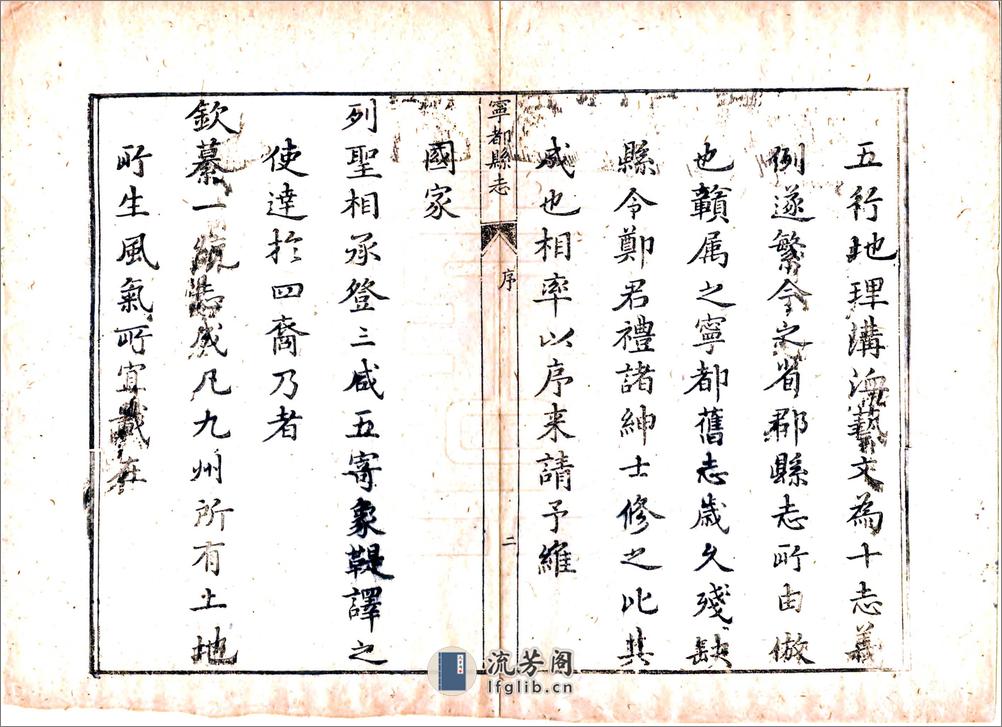 五行地理溝洫藝文為十志義
例遂繁今之省郡縣志所由倣
也贛属之寧都舊志歲久殘缺
縣令鄭君禮諸紳士修之此其
成也相率以序来請予維
寧都縣志
序
二
國家
列聖相承登三咸五寄象鞮譯之
使達於四裔乃者
欽纂一統志成凡九州所有土地
所生風氣所宜載在
流芳阁
lfglib.cn